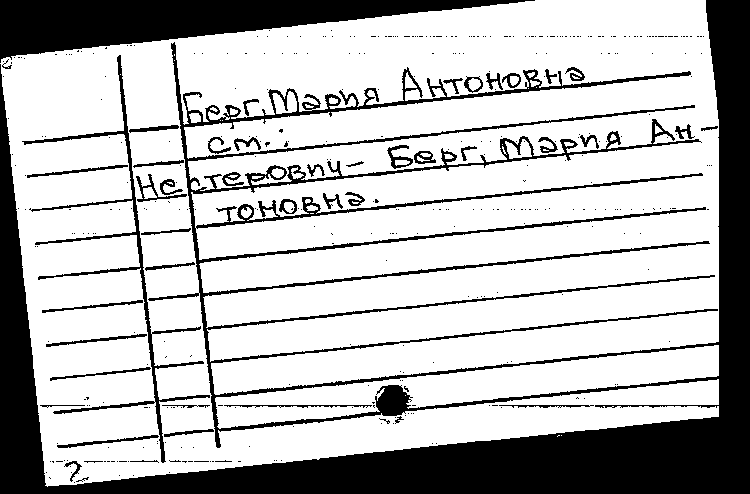 Берг, Мария Антоновна
см.:
Нестерович- Берг, Мария Ан-
тоновна.
2